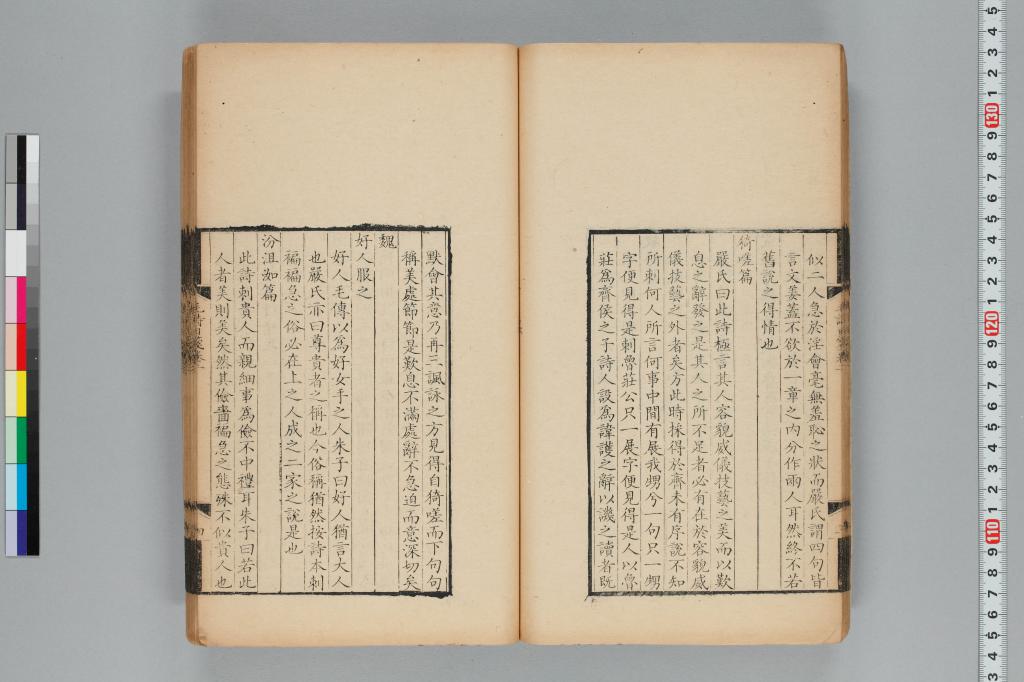 似二人急於淫會毫無羞恥之狀而嚴氏謂四句皆
言文姜蓋不欲於一章之內分作兩人耳然終不若
舊說之得情也
猗嗟篇
嚴氏曰此詩極言其人容貌威儀技藝之美而以歎
息之辭發之是其人之所不足者必有在於容貌威
儀技藝之外者矣方此時採得於齊未有序說不知
所刺何人所言何事中間有展我甥兮一句只一甥
字便見得是刺魯莊公只一展字便見得是人以魯
莊為齊侯之子詩人設為諱護之辭以譏之讀者既
默會其意乃再三諷詠之方見得自猗嗟而下句句
稱美處節節是歎息不滿處辭不急迫而意深切矣
魏
好人服之
好人毛傳以為好女手之人朱子曰好人猶言大人
也嚴氏亦曰尊貴者之稱也今俗稱猶然按詩本刺
褊褊急之俗必在上之人成之二家之說是也
汾沮洳篇
此詩刺貴人而親細事為儉不中禮耳朱子曰若此
人者美則美矣然其儉嗇褊急之態殊不似貴人也